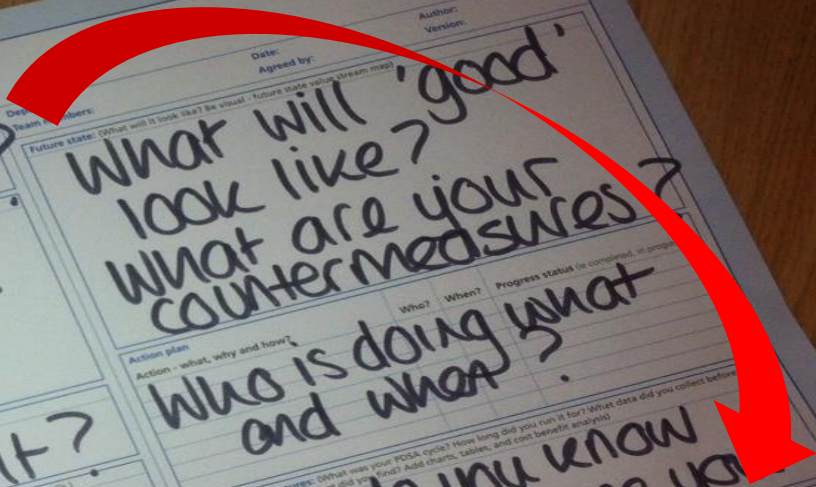 Author:
Date:
Version:
Agreed by:
Team members:
Future state: (What will it look like? Be visual - future state value stream map)
What will 'good'
look like?
What are your
countermeasures?
Action plan
Action - what, why and how?
Who?
When?
Progress status (ie completed, in progress
Who is doing what
and when?
it?
(What was your PDSA cycle? How long did you run it for? What data did you collect before
did you find? Add charts, tables, and cost benefit analysis)
you know